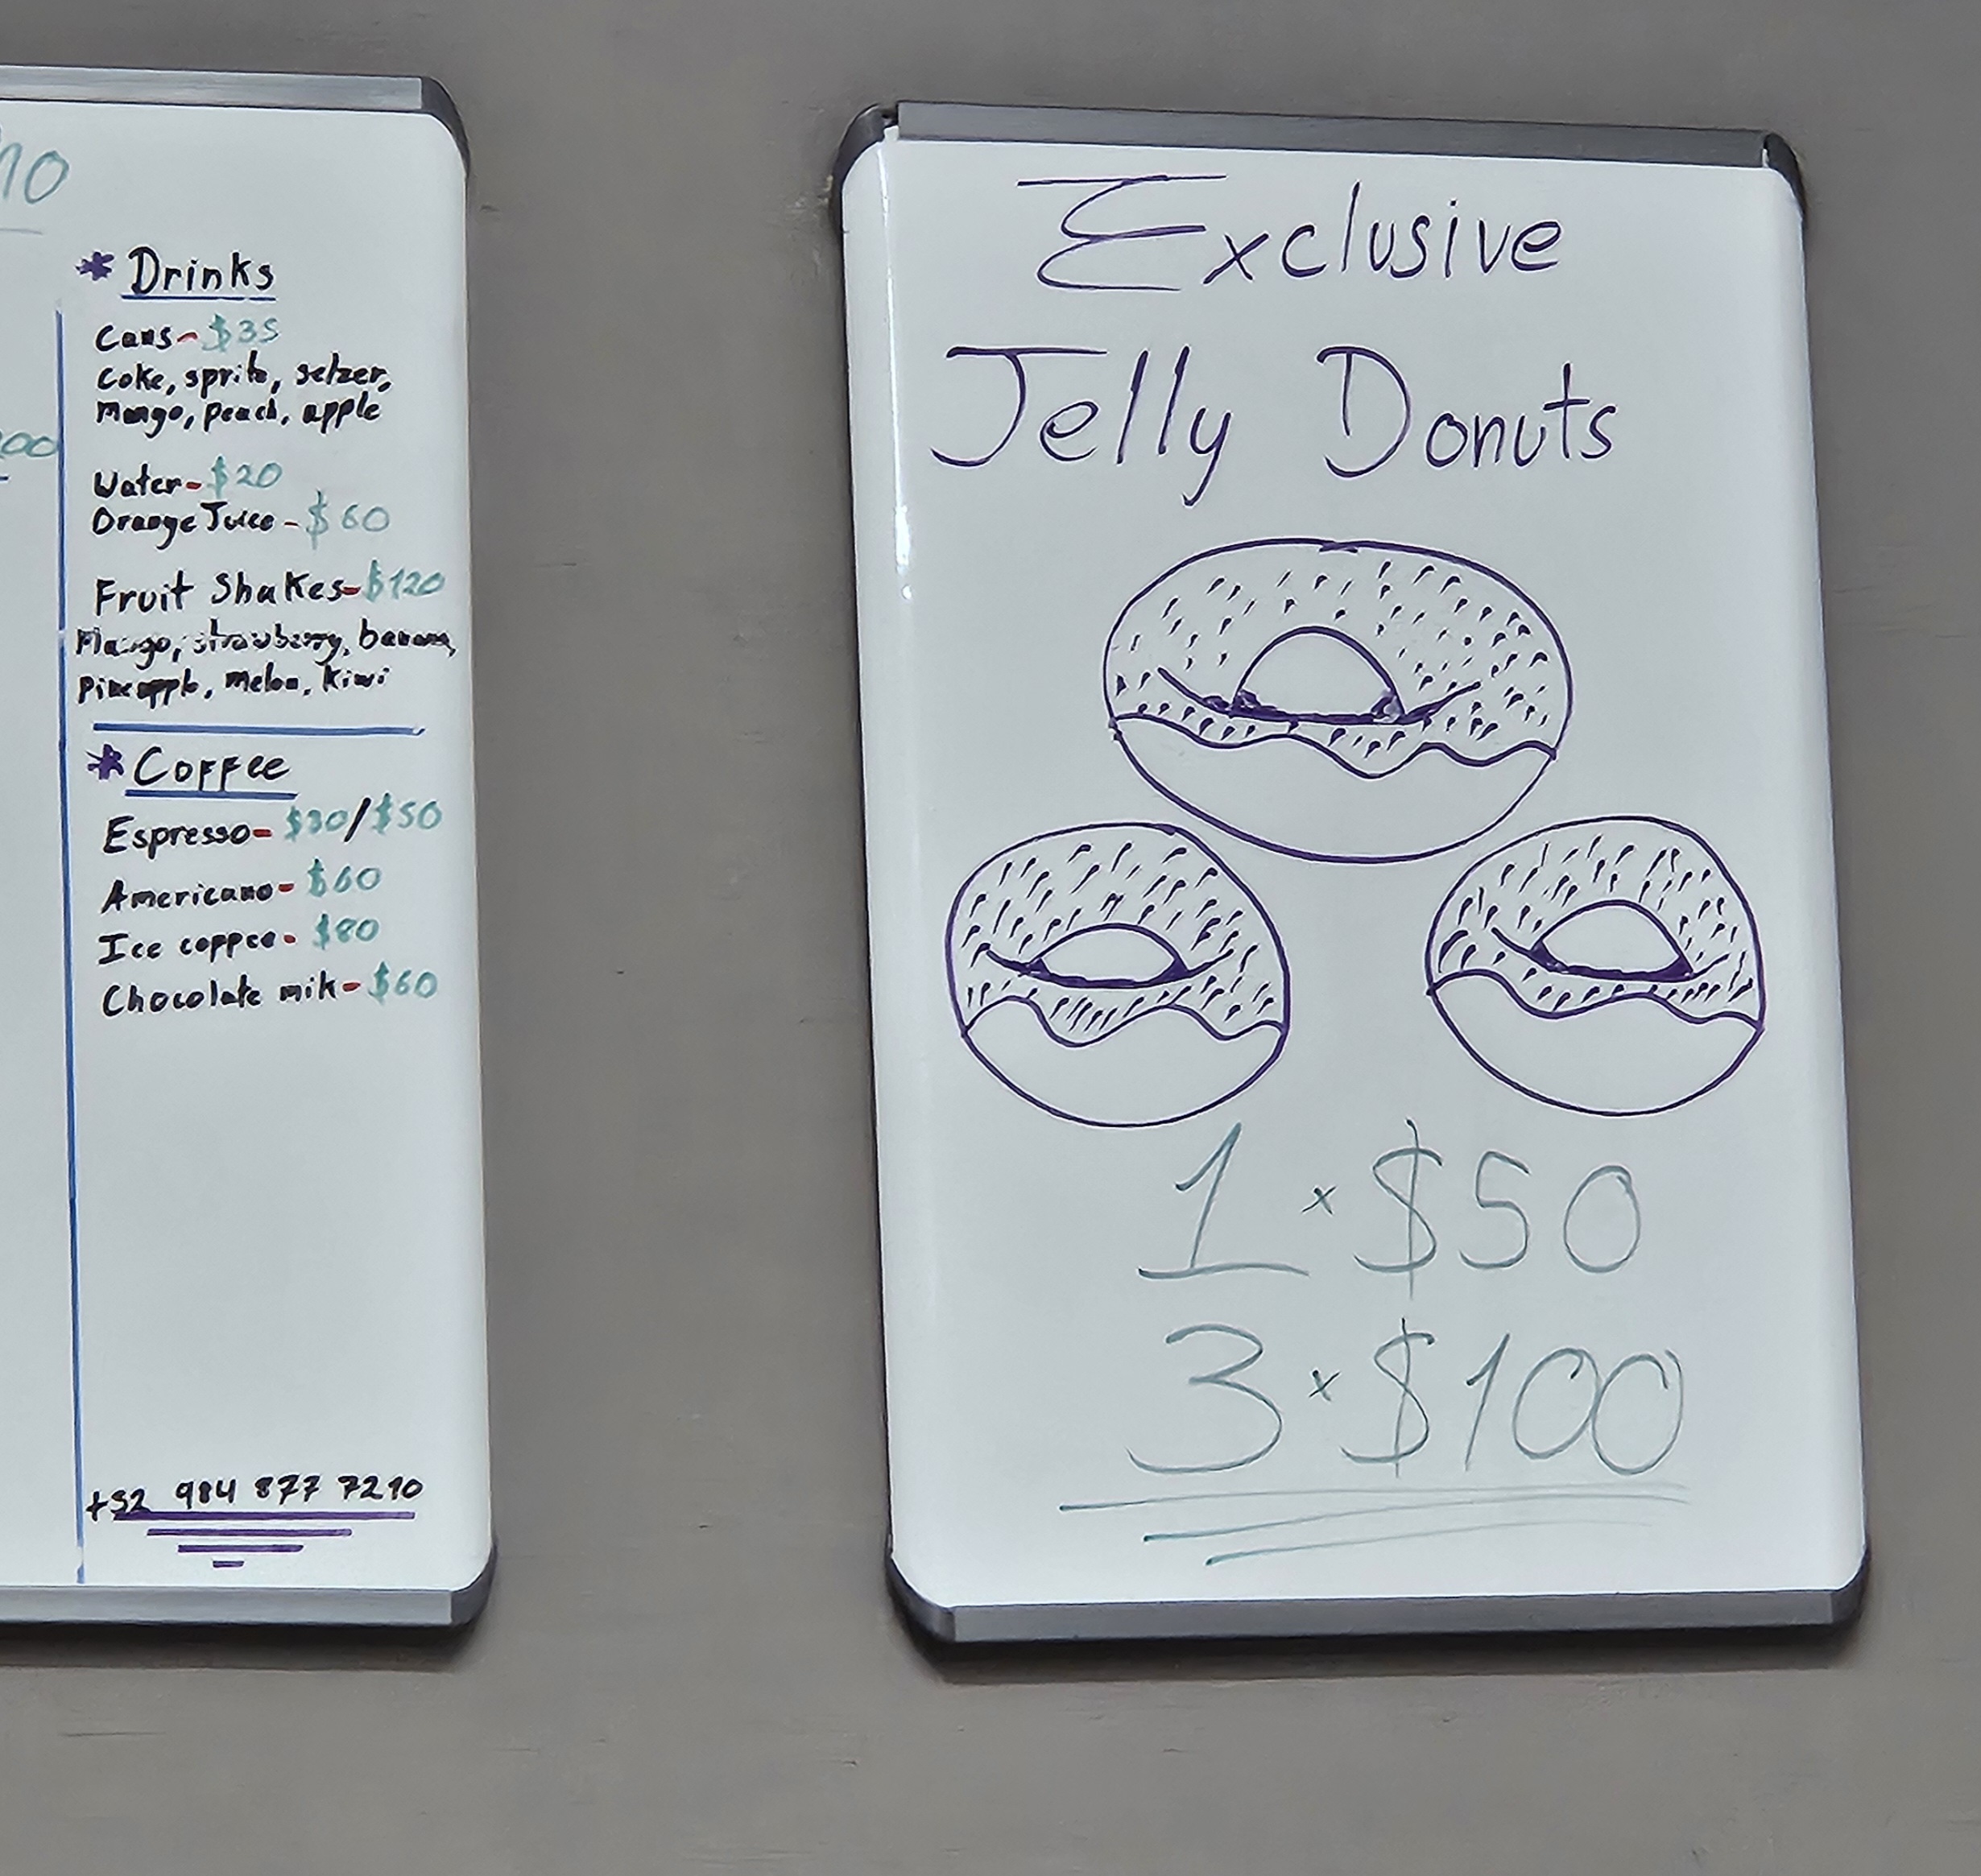 * Drinks
Cans-$35
Coke, sprite, selzer,
Mango, peach, apple
Water-$20
Orange Juice-$60
Fruit Shakes-$120
Mango, strawberry, banana,
Pineapple, melon, kiwi
* Coffee
Espresso-$30/$50
Americano-$60
Ice coffee-$80
Chocolate milk-$60
+52 984 877 7210
Exclusive
Jelly Donuts
1x$50
3x$100